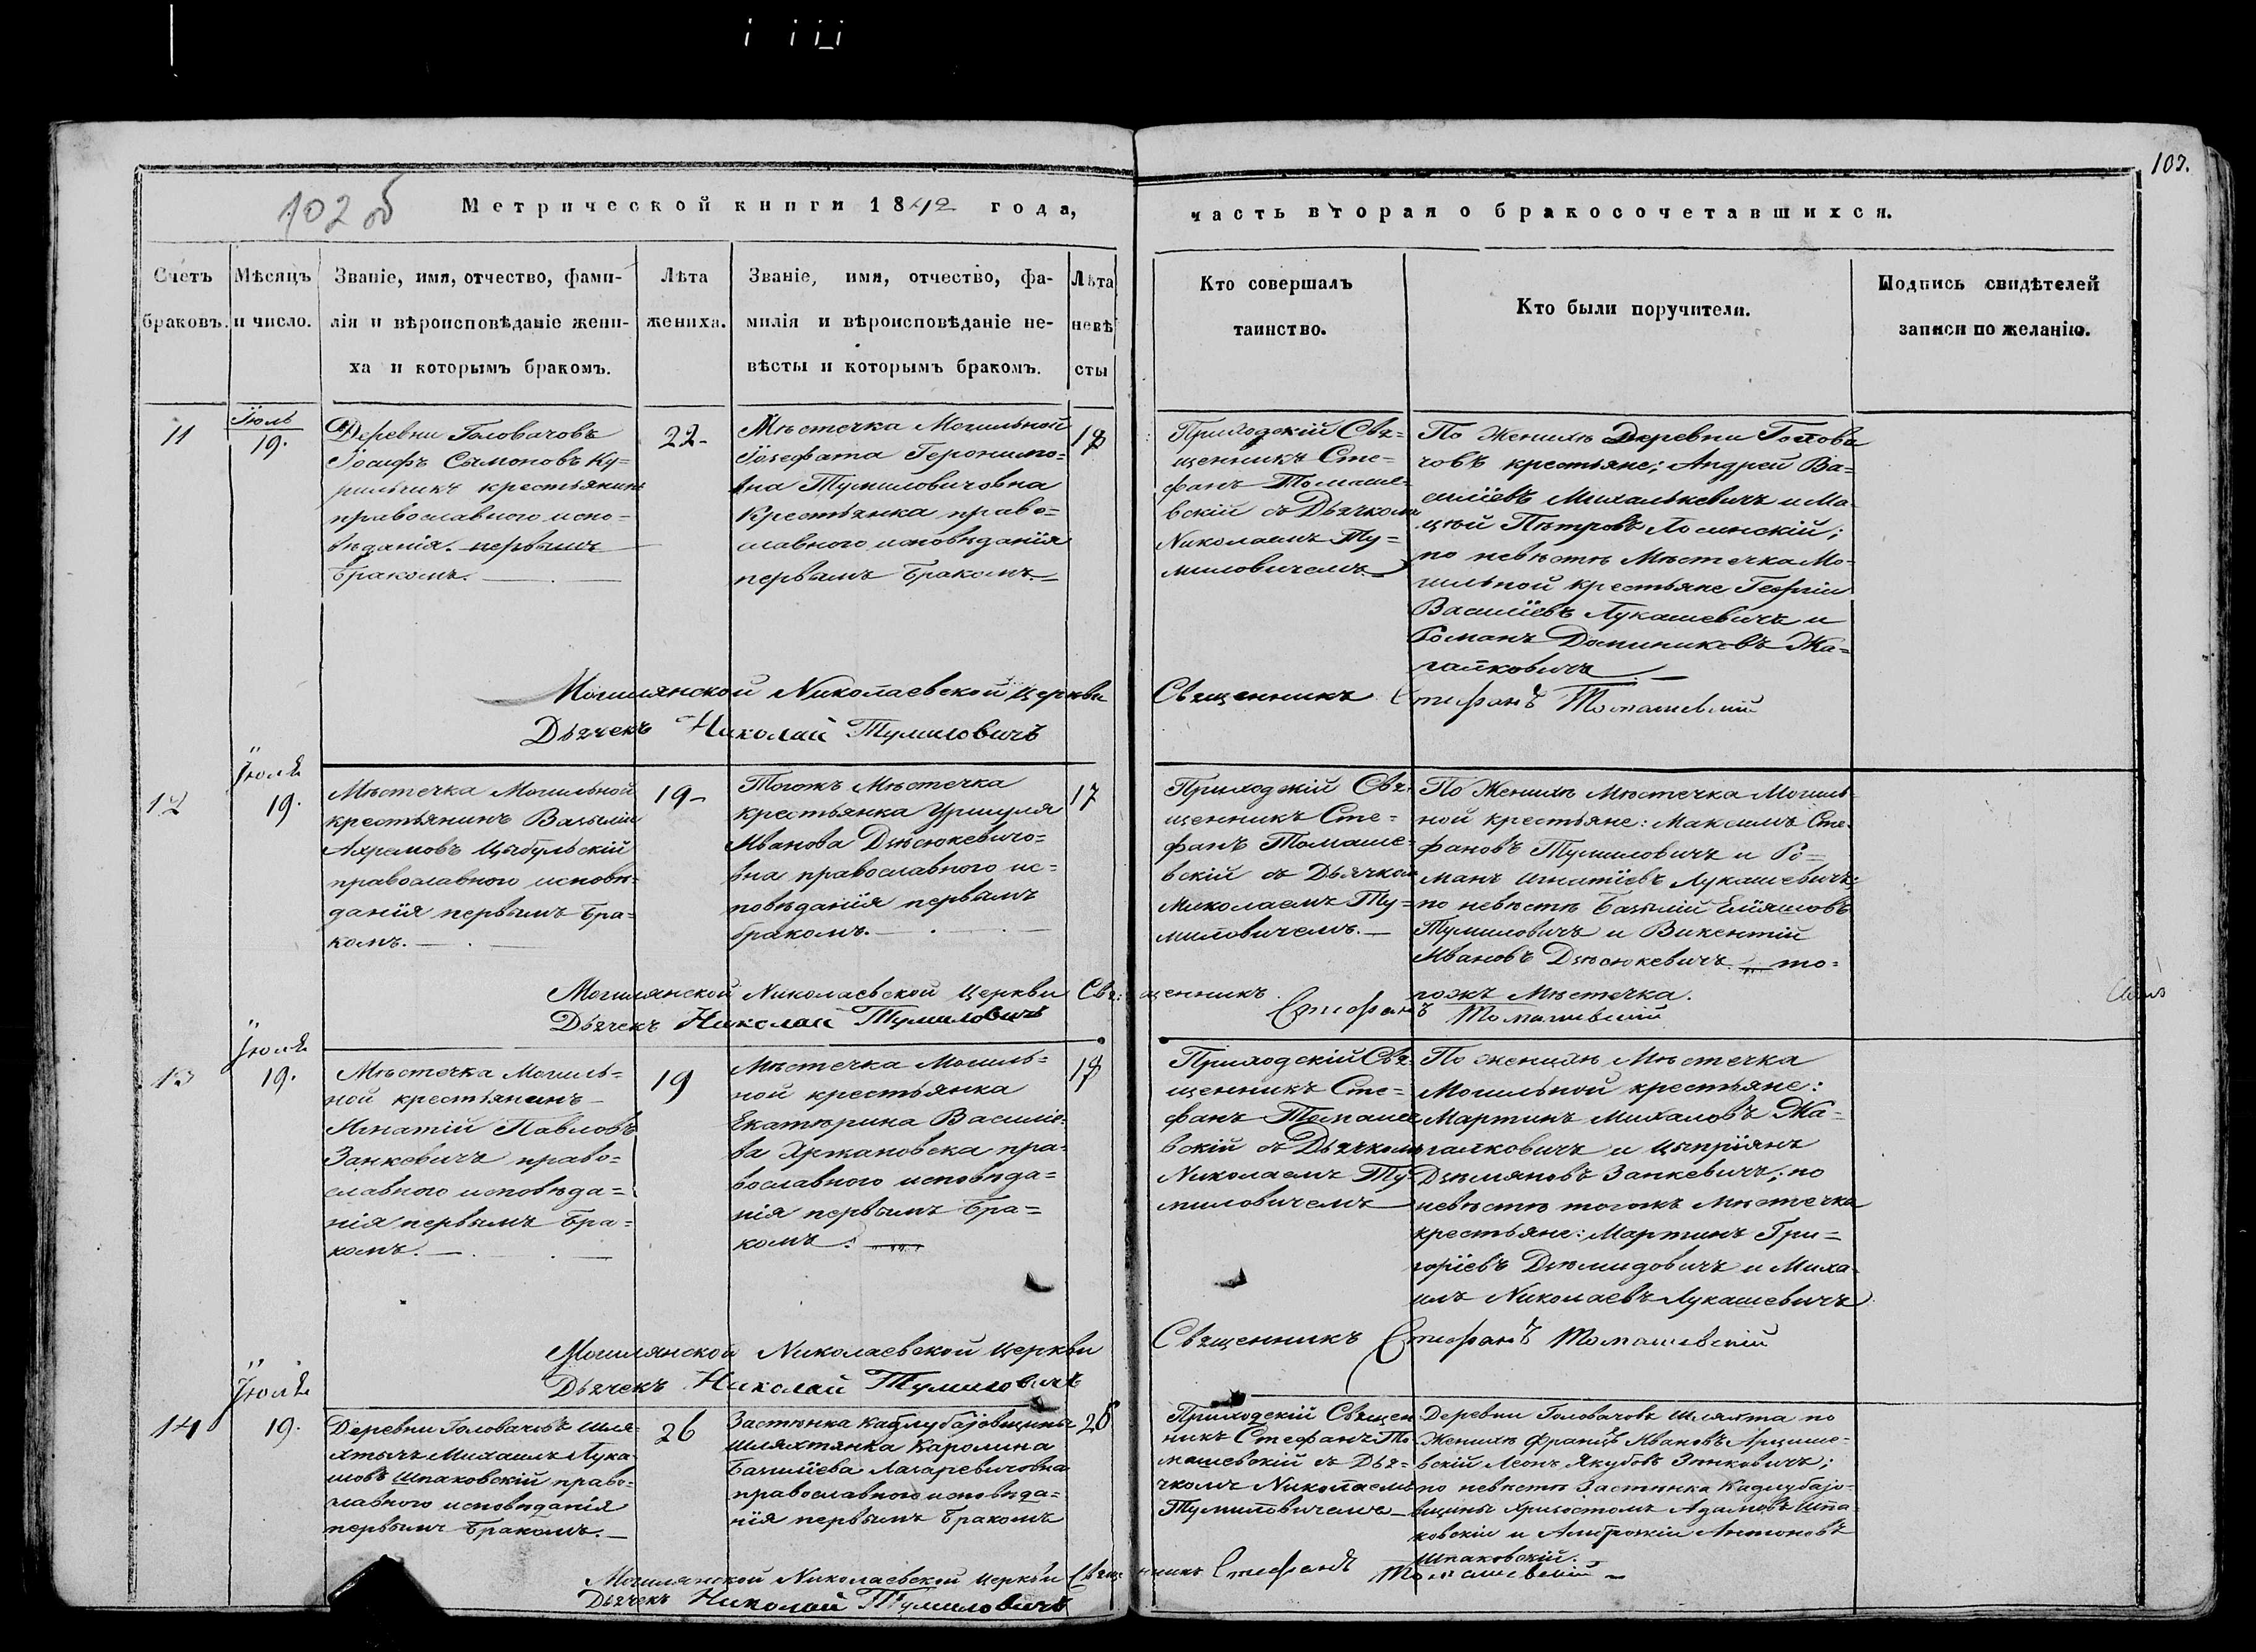 103.
102 об
Метрической книги 1842 года,
часть вторая о бракосочетавшихся.
Счетъ
браковъ.
Мѣсяцъ
и число.
Званіе, имя, отчество, фами-
лія и вѣроисповѣданіе жени-
ха и которымъ бракомъ.
Лѣта
жениха.
Званіе, имя, отчество, фа-
милія и вѣроисповѣданіе не-
вѣсты и которымъ бракомъ.
Лѣта
невѣ
сты
Кто совершалъ
таинство.
Кто были поручители.
Подпись свидѣтелей
записи по желанію.
11
Іюль
19.
Деревни Головачовъ
Іосифъ Сымоновъ Ку-
рильчикъ крестьянинъ
православнаго испо-
вѣданія. первымъ
бракомъ.
22-
Мѣстечка Могильной
Іозефата Геронимо-
вна Тумиловичовна
Крестьянка право-
славного исповѣданія
первымъ бракомъ.
18
Приходскій Свя-
щенникъ Сте-
фанъ Томаше-
вскій съ Дьячкомъ
Николаемъ Ту-
миловичемъ.
По Женихѣ Деревни Голова
човъ крестьяне; Андрей Ва-
силіевъ Михалькевичъ и Ма-
цѣй Пѣтровъ Лосинскій;
по невѣстѣ Мѣстечка Мо-
гильной крестьяне Георгій
Василіевъ Лукашевичъ и
Романъ Доминиковъ Жа-
галковичъ
Могилянской Николаевской Церкви
Священникъ Стефанъ Томашевскій
Дьячекъ Николай Тумиловичъ
12
Іюля
19.
Мѣстечка Могильной
крестьянинъ Василій
Ахремовъ Цыбульскій
православного исповѣ-
данія первымъ бра-
комъ.
19-
Тогожъ Мѣстечка
крестьянка Уршуля
Иванова Дѣсюкевичо-
вна православного ис-
повѣданія первымъ
бракомъ.
17
Приходскій Свя-
щенникъ Сте-
фанъ Томаше-
вскій съ Дьячком
Николаемъ Ту-
миловичемъ.
По Женихѣ Мѣстечка Могиль-
ной крестьяне: Максимъ Сте-
фановъ Тумиловичъ и Ро-
манъ Игнатіевъ Лукашевичъ;
по невѣстѣ Базылій Еліяшовъ
Тумиловичъ и Викентій
Ивановъ Дѣсюкевичъ то-
гожъ Мѣстечка.
Могилянской Николаевской Церкви Священникъ
Стефанъ Томашевскій
Дьячекъ Николай Тумиловичъ
13
Іюля
19.
Мѣстечка Могиль-
ной крестьянинъ
Игнатій Павловъ
Занкевичъ право-
славного исповѣда-
нія первымъ бра-
комъ.
19
Мѣстечка Могиль-
ной крестьянка
Екатерина Василіе-
ва Хржановска пра-
вославного исповѣда-
нія первымъ бра-
комъ.
18
Приходскій Свя-
щенникъ Сте-
фанъ Томаше-
вскій съ Дьячкомъ
Николаемъ Ту-
миловичемъ
По женихѣ Мѣстечка
Могильной крестьяне:
Мартинъ Михаловъ Жа-
галковичъ и Цыпріянъ
Дѣмяновъ Занкевичъ; по
невѣстѣ тогожъ Мѣстечка
крестьяне: Мартинъ Гри-
горіевъ Дѣмидовичъ и Миха-
илъ Николаевъ Лукашевичъ
Могилянской Николаевской Церкви
Священникъ Стефанъ Томашевскій
Дьячекъ Николай Тумиловичъ
14
Іюля
19.
Деревни Головачовъ шля-
хтычъ Михаилъ Лука-
шовъ Шпаковскій право-
славного исповѣданія
первымъ бракомъ.
26
Застѣнка Кадлубаіовщины
шляхтянка Каролина
Базиліева Лазаревичовна
православного исповѣда-
нія первымъ бракомъ
Приходскій Священ
никъ Стефанъ То-
машевскій съ Дья-
чкомъ Николаемъ
Тумиловичемъ
Деревни Головачовъ шляхта по
Женихѣ Францъ Ивановъ Арцише-
вскій Леонъ Якубовъ Зянковичъ;
по невѣстѣ Застѣнка Кадлубаіо-
вщины Хризостомъ Адамовъ Шпа-
ковскій и Амброжій Антоновъ
Шпаковскій.
Могилянской Николаевской Церкви Священникъ Стефанъ Томашевскій
Дьячекъ Николай Тумиловичъ